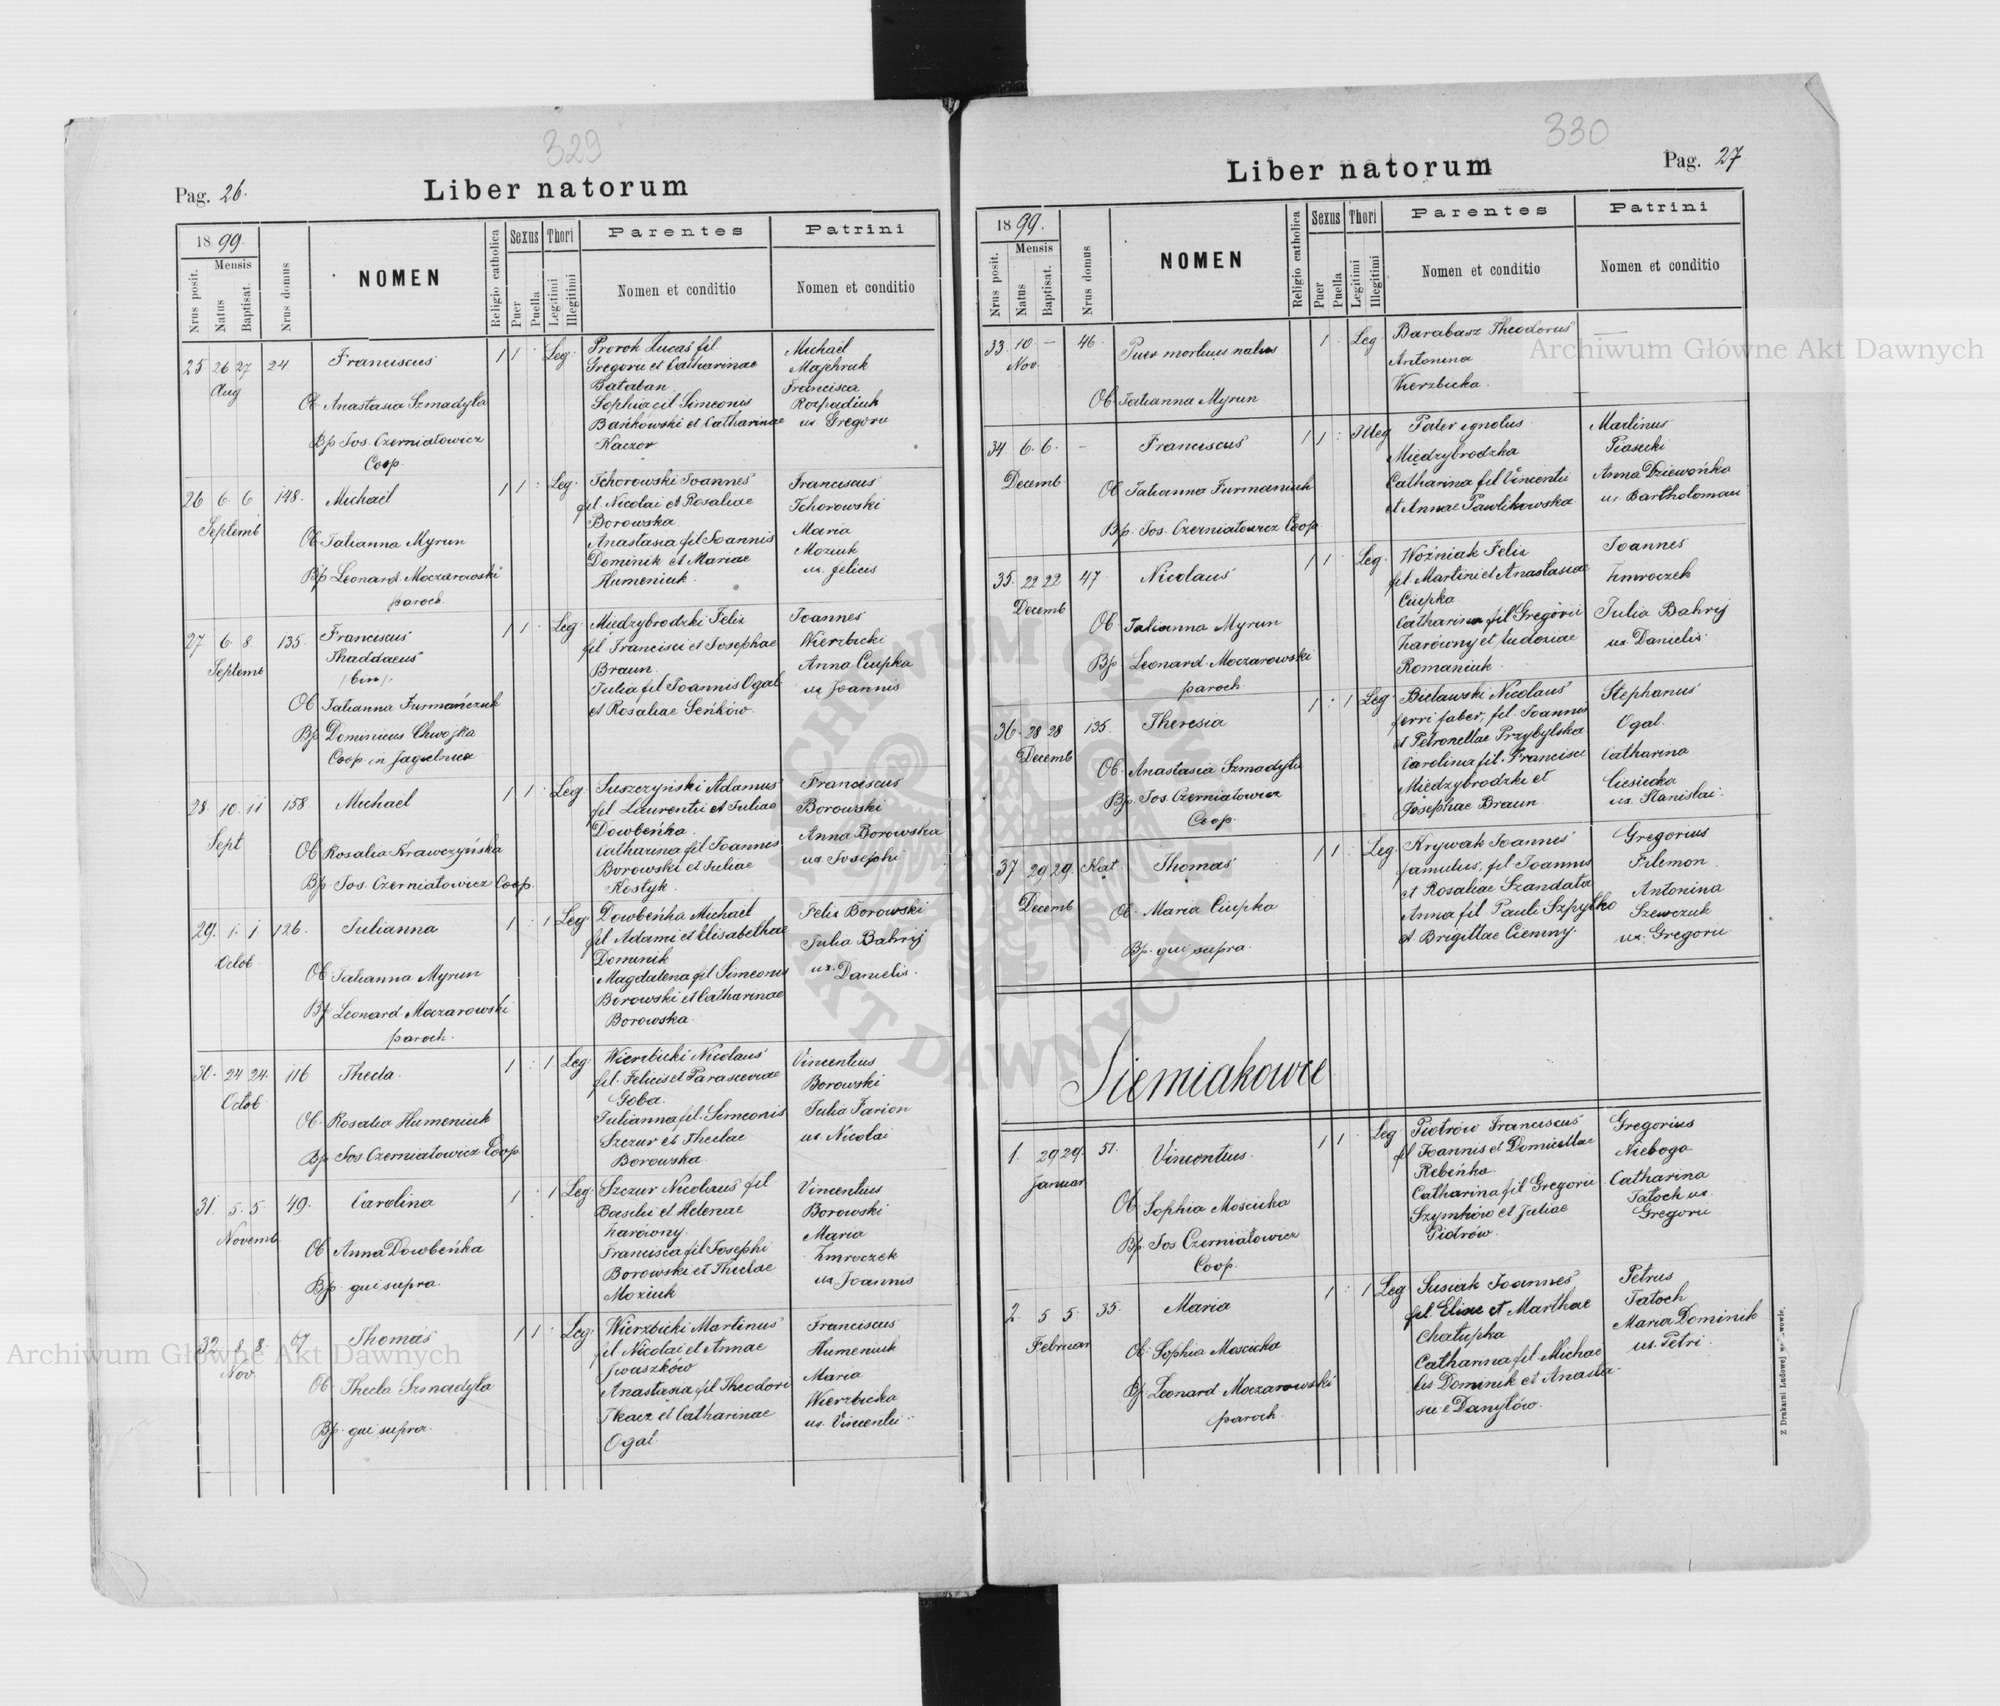 329
Pag. 26.
Liber natorum
1899.
Nrus posit.
Mensis
Natus
Baptisat.
Nrus domus
NOMEN
Religio catholica
Sexus
Puer
Puella
Thori
Legitimi
Illegitimi
Parentes
Nomen et conditio
Patrini
Nomen et conditio
25 26 27 24 Franciscus 1 1 : Leg. Prorok Lucas fil Michael
Aug Gregorii et Catharinae Majchruk
Bataban Francisca
Ob. Anastasia Szmadyła Sophia fil Simeonis Rozpadiuk
Bańkowski et Catharinae ux Gregorii
Bp Jos. Czerniatowicz Kaczor
Coop.
26 6 6 148. Michael 1 1 : Leg. Tchorowski Joannes Franciscus
Septemb fil Nicolai et Rosaliae Tchorowski
Borowska Maria
Ob Tatianna Myrun Anastasia fil Joannis Moziuk
Bp Leonard Moczarowski Dominik et Mariae ux. Felicis
paroch. Humeniuk.
27 6 8 135. Franciscus 1 1 : Leg. Miedzybrodzki Felix Joannes
Septemb Thaddaeus fil Francisci et Josephae Wierzbicki
Braun. Anna Ciupka
Ob Tatianna Furmańczuk Julia fil Joannis Ogal ux Joannis
Bp. Dominicus Chwojka et Rosaliae Seńków.
Coop. in Jagielnica
28 10. 11 158. Michael 1 1 : Leg. Suszczyński Adamus Franciscus
Sept fil Laurentii et Juliae Borowski
Dowbeńka. Anna Borowska
Ob Rosalia Krawczyńska Catharina fil Joannis ux Josephi
Bp. Jos. Czerniatowicz Coop. Borowski et Juliae
Kostyk.
29. 1. 1 126. Julianna 1 : 1 Leg Dowbeńka Michael Felix Borowski
Octob fil Adami et Elisabethae Julia Bahrij
Dominik ux. Danielis.
Ob Tatianna Myrun Magdalena fil Simeonis
Bp Leonard Moczarowski Borowski et Catharinae
paroch. Borowska.
30. 24 24. 116 Thecla. 1 : 1 Leg. Wierzbicki Nicolaus Vincentius
Octob fil. Felicis et Parasceviae Borowski
Goba. Julia Farion
Ob. Rosalia Humeniuk Julianna fil. Simeonis ux Nicolai
Bp Jos Czerniatowicz Coop. Szczur et Theclae
Borowska.
31. 5. 5. 49. Carolina 1 : 1 Leg. Szczur Nicolaus fil Vincentius
Novemb Basilii et Helenae Borowski
Żarówny. Maria
Ob Anna Dowbeńka Francisca fil Josephi Zmroczek
Bp. qui supra. Borowski et Theclae ux Joannis
Moziuk
32 8 8. 67 Thomas 1 1 : Leg. Wierzbicki Martinus Franciscus
Nov. fil Nicolai et Annae Humeniuk
Iwaszków Maria
Ob. Thecla Szmadyła Anastasia fil Theodori Wierzbicka
Bp. qui supra. Tkacz et Catharinae ux. Vincentii
Ogal.
330
Liber natorum
Pag. 27
1899.
Nrus posit.
Mensis
Natus
Baptisat.
Nrus domus
NOMEN
Religio catholica
Sexus
Puer
Puella
Thori
Legitimi
Illegitimi
Parentes
Nomen et conditio
Patrini
Nomen et conditio
33 10 — 46. Puer mortuus natus 1 : Leg Barabasz Theodorus —
Nov. Antonina
Wierzbicka.
Ob Tatianna Myrun
34. 6. 6. — Franciscus 1 1 : Illeg Pater ignotus Martinus
Decemb Międzybrodzka Piasecki
Ob Tatianna Furmaniuk Catharina fil Vincentii Anna Dziewońka
Bp. Jos. Czerniatowicz Coop et Annae Pawlikowska ux Bartholomaei
35. 22 22 47 Nicolaus 1 1 : Leg. Woźniak Felix Joannes
Decemb fil. Martini et Anastasiae Zmroczek
Ciupka Julia Bahrij
Ob. Tatianna Myrun Catharina fil Gregorii ux. Danielis.
Bp Leonard Moczarowski Żarówny et Eudoxiae
paroch Romaniuk.
36. 28 28 135. Theresia 1 : 1 Leg Bielawski Nicolaus Stephanus
Decemb ferri faber, fil. Joannis Ogal.
et Petronellae Przybylska Catharina
Ob. Anastasia Szmadyła Carolina fil. Francisci Ciesiecka
Bp. Jos. Czerniatowicz Miedzybrodzki et ux. Stanislai.
Coop. Josephae Braun.
37 29 29. Kat. Thomas 1 1 : Leg. Krywak Joannes Gregorius
Decemb famulus, fil Joannis Filemon.
et Rosaliae Szandała Antonina
Ob. Maria Ciupka Anna fil Pauli Szpytko Szewczuk
Bp. qui supra. et Brigittae Ciemny. ux. Gregorii
Siemiakowce
1. 29 29. 51. Vincentius. 1 1 : Leg Piotrów Franciscus Gregorius
Januar fil Joannis et Domicellae Nieboga
Rebeńka Catharina
Ob. Sophia Mościcka Catharina fil Gregorii Tatoch ux.
Bp. Jos Czerniatowicz Szymków et Juliae Gregorii
Coop. Piotrów.
2. 5 5. 35. Maria 1 : 1 Leg Susiak Joannes Petrus
Februar fil. Eliae et Marthae Tatoch
Chałupka Maria Dominik
Ob. Sophia Moscicka Catharina fil. Michae ux. Petri.
Bp. Leonard Moczarowski lis Dominik et Anasta
paroch. siae Danyłów.
Z Drukarni Ludowej we Lwowie.
Archiwum Główne Akt Dawnych
Archiwum Główne Akt Dawnych
ARCHIWUM GŁÓWNE AKT DAWNYCH